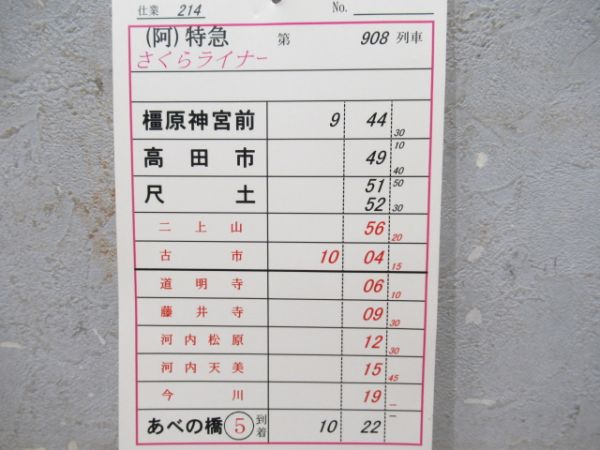 仕業 214 No.
(阿) 特急 第 908 列車
さくらライナー
橿原神宮前 9 44 30
高田市 49 10 40
尺土 51 50
52 30
二上山 56 20
古市 10 04 15
道明寺 06 10
藤井寺 09 30
河内松原 12 30
河内天美 15 45
今川 19 —
あべの橋 ⑤ 到着 10 22 —